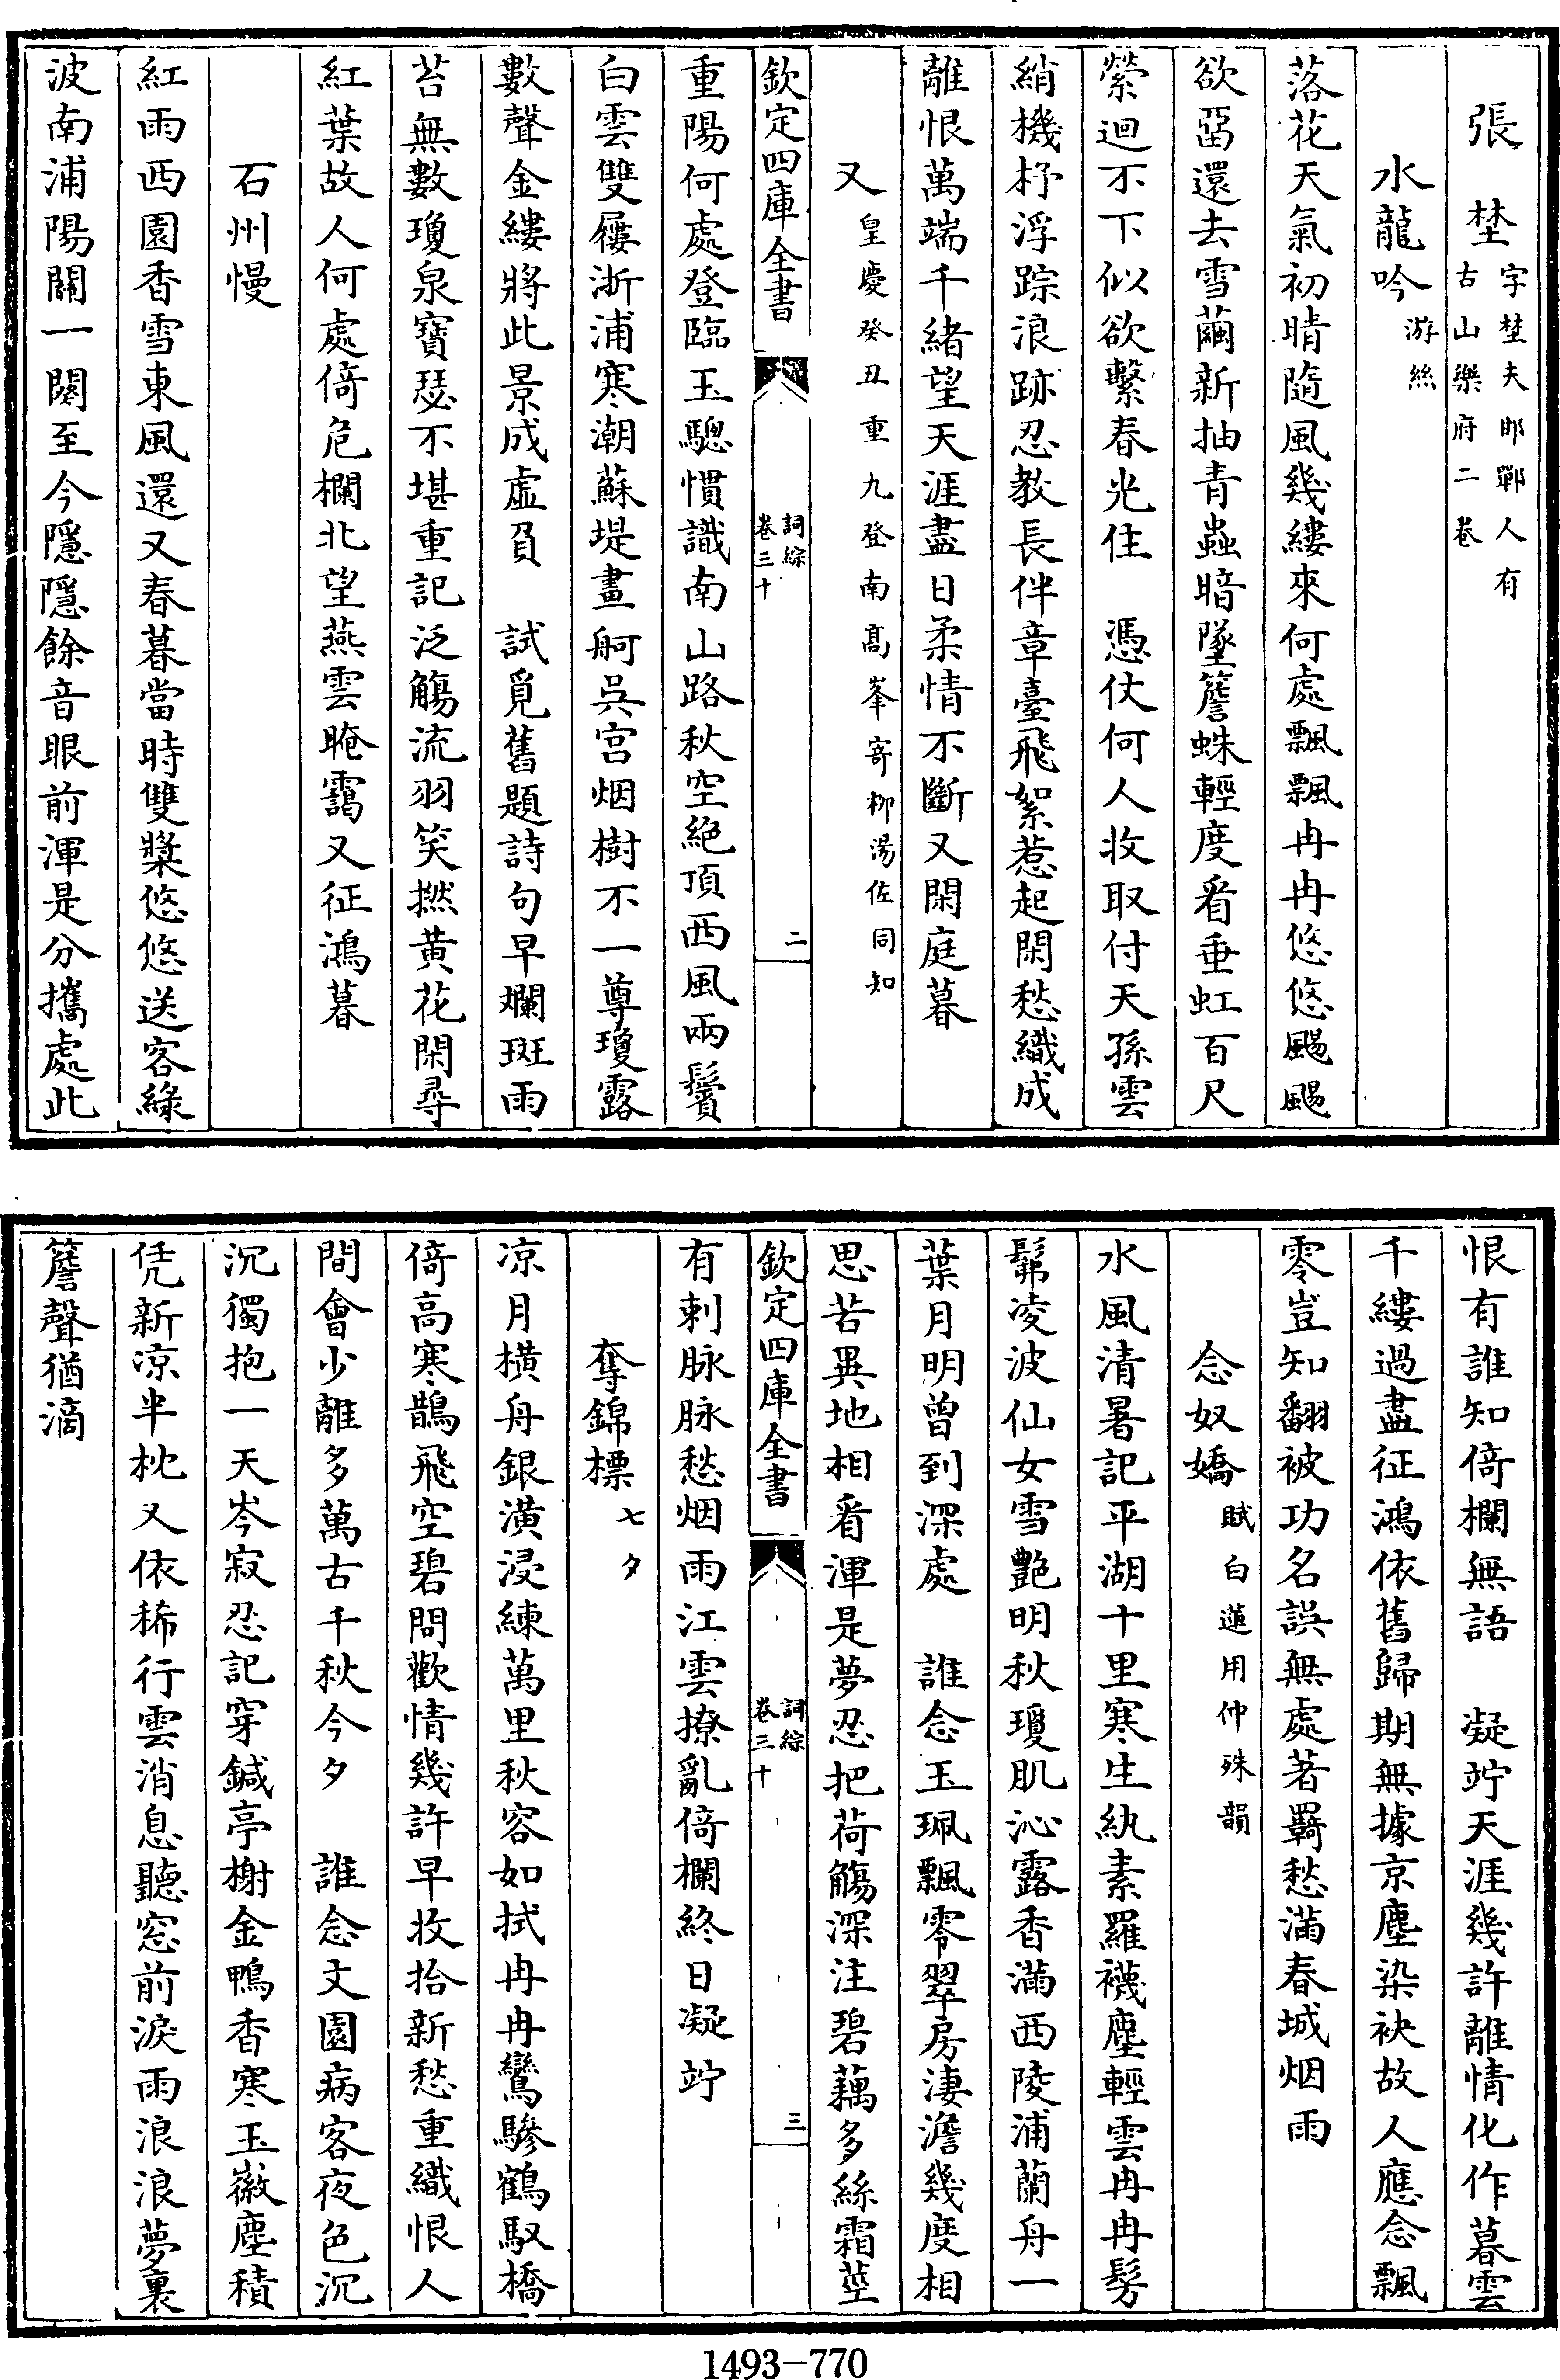 張　埜字埜夫邯鄲人有古山樂府二卷
水龍吟游絲
落花天氣初晴隨風幾縷來何處飄飄冉冉悠悠颺颺
欲畱還去雪繭新抽青蟲暗墜簷蛛輕度看垂虹百尺
縈迴不下似欲繫春光住　憑仗何人收取付天孫雲
綃機杼浮踪浪跡忍教長伴章臺飛絮惹起閑愁織成
離恨萬端千緒望天涯盡日柔情不斷又閑庭暮
又皇慶癸丑重九登南高峯寄柳湯佐同知
欽定四庫全書　詞綜卷三十　二
重陽何處登臨玉驄慣識南山路秋空絕頂西風兩鬢
白雲雙屨浙浦寒潮蘇堤畫舸吳宫烟樹不一尊瓊露
數聲金縷將此景成虛負　試覓舊題詩句早斕斑雨
苔無數瓊泉寶瑟不堪重記泛觴流羽笑撚黄花閑尋
紅葉故人何處倚危欄北望燕雲晻靄又征鴻暮
石州慢
紅雨西園香雪東風還又春暮當時雙槳悠悠送客綠
波南浦陽關一闋至今隱隱餘音眼前渾是分攜處此
恨有誰知倚欄無語　凝竚天涯幾許離情化作暮雲
千縷過盡征鴻依舊歸期無據京塵染袂故人應念飄
零豈知翻被功名誤無處著羇愁滿春城烟雨
念奴嬌賦白蓮用仲殊韻
水風清暑記平湖十里寒生紈素羅襪塵輕雲冉冉髣
髴凌波仙女雪艷明秋瓊肌沁露香滿西陵浦蘭舟一
葉月明曾到深處　誰念玉珮飄零翠房淒澹幾度相
思苦異地相看渾是夢忍把荷觴深注碧藕多絲霜莖
欽定四庫全書　詞綜卷三十　三
有刺脉脉愁烟雨江雲撩亂倚欄終日凝竚
奪錦標七夕
凉月橫舟銀潢浸練萬里秋容如拭冉冉鸞驂鶴馭橋
倚高寒鵲飛空碧問歡情幾許早收拾新愁重織恨人
間會少離多萬古千秋今夕　誰念文園病客夜色沉
沉獨抱一天岑寂忍記穿鍼亭榭金鴨香寒玉徽塵積
凭新凉半枕又依稀行雲消息聽窓前淚雨浪浪夢裏
簷聲猶滴
1493—770